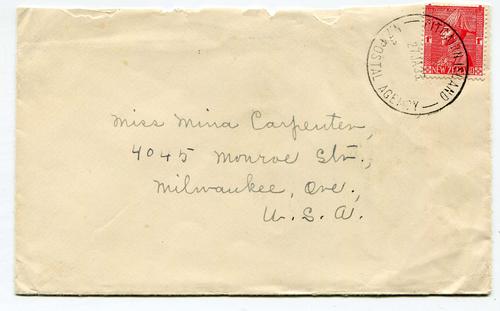 PITCAIRN ISLAND
N.Z. POSTAL AGENCY
27 JA 33
NEW ZEALAND
Miss Mina Carpenter,
4045 Monroe Str.,
Milwaukee, Ore.,
U.S.A.